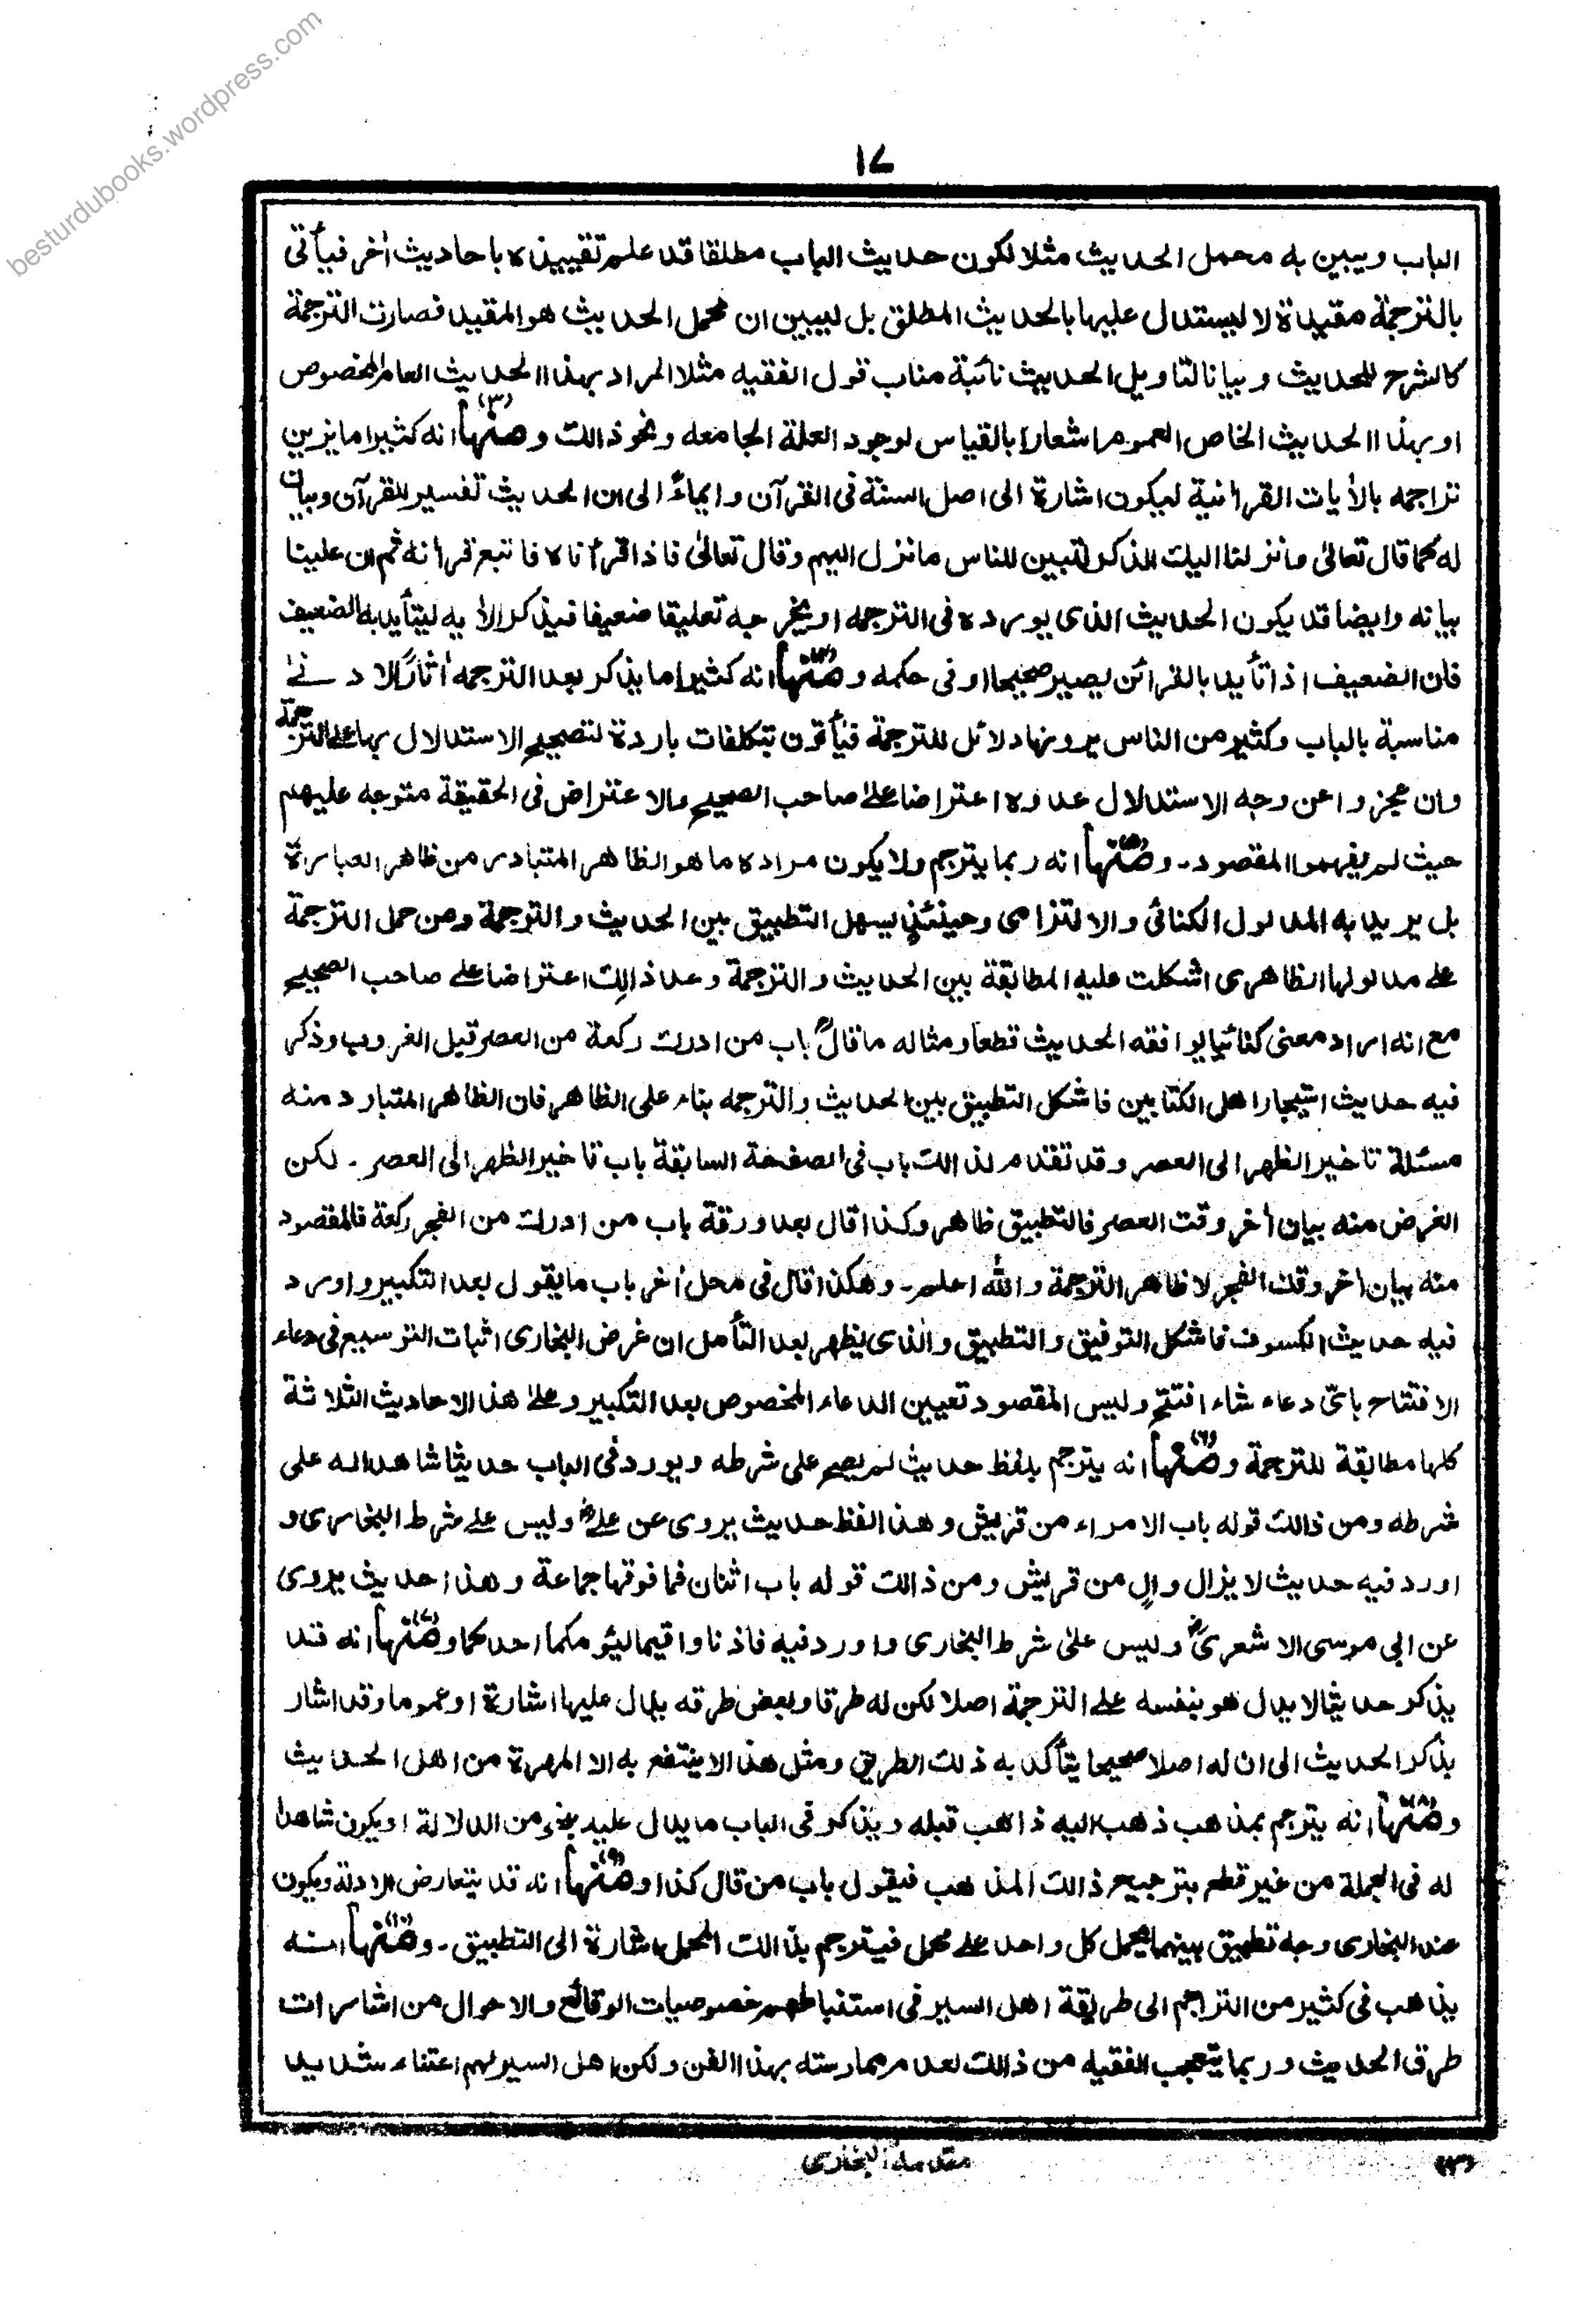 besturdubooks.wordpress.com
١٧
الباب ويبين به محمل الحديث مثلا لكون حديث الباب مطلقا قد علم تقييده باحاديث أخر فيأتى
بالترجمة مقيدة لا ليستدل عليها بالحديث المطلق بل ليبين ان محمل الحديث هو المقيد فصارت الترجمة
كالشرح للحديث وبيانا لتاويل الحديث نائبة مناب قول الفقيه مثلا المراد بهذا الحديث العام الخصوص
او بهذا الحديث الخاص العموم اشعارا بالقياس لوجود العلة الجامعه ونحو ذالك ومنها (٣) انه كثيرا ما يزين
تراجمه بالأيات القرأنية ليكون اشارة الى اصل السنة فى القرآن وايماءً الى ان الحديث تفسير للقرآن وبيان
له كما قال تعالىٰ وانزلنا اليك الذكر لتبين للناس ما نزل اليهم وقال تعالىٰ فاذا قرأناه فاتبع قرأنه ثم ان علينا
بيانه وايضا قد يكون الحديث الذى يورده فى الترجمه او يخرجه تعليقا ضعيفا فيذكر الأيه ليتأيد به الضعيف
فان الضعيف اذا تأيد بالقرائن يصير صحيحا او فى حكمه ومنها (٤) انه كثيرا ما يذكر بعد الترجمه أثارًا لادنىٰ
مناسبة بالباب وكثير من الناس يرونها دلائل للترجمة فيأتون بتكلفات باردة لتصحيح الاستدلال بها على الترجمة
وان عجزوا عن وجه الاستدلال عدوه اعتراضا علىٰ صاحب الصحيح والاعتراض فى الحقيقة متوجه عليهم
حيث لم يفهموا المقصود۔ ومنها (٥) انه ربما يترجم ولا يكون مراده ما هو الظاهر المتبادر من ظاهر العبارة
بل يريد به المدلول الكنائى والالتزامى وحينئذٍ يسهل التطبيق بين الحديث والترجمة ومن حمل الترجمة
على مدلولها الظاهرى اشكلت عليه المطابقة بين الحديث والترجمة وعد ذالك اعتراضا على صاحب الصحيح
مع انه اراد معنى كنائيا يوافقه الحديث قطعا ومثاله ما قال باب من ادرك ركعة من العصر قبل الغروب وذكر
فيه حديث استيجار اهل الكتابين فاشكل التطبيق بين الحديث والترجمه بناء على الظاهر فان الظاهر المتبارد منه
مسئلة تاخير الظهر الى العصر وقد تقدم لذالك باب فى الصفحة السابقة باب تاخير الظهر الى العصر۔ لكن
الغرض منه بيان أخر وقت العصر فالتطبيق ظاهر وكذا قال بعد ورقة باب من ادرك من الفجر ركعة فالمقصود
منه بيان أخر وقت الفجر لا ظاهر الترجمة والله اعلم۔ وهكذا قال فى محل أخر باب ما يقول بعد التكبير واورد
فيه حديث الكسوف فاشكل التوفيق والتطبيق والذى يظهر بعد التأمل ان غرض البخارى اثبات التوسيع فى دعاء
الافتتاح باىّ دعاء شاء افتتح وليس المقصود تعيين الدعاء المخصوص بعد التكبير وعلىٰ هذا الاحاديث الثلاثة
كلها مطابقة للترجمة ومنها (٦) انه يترجم بلفظ حديث لم يصح على شرطه ويورد فى الباب حديثا شاهدا له على
شرطه ومن ذالك قوله باب الامراء من قريش وهذا لفظ حديث يروى عن علىؓ وليس على شرط البخارى و
اورد فيه حديث لا يزال والٍ من قريش ومن ذالك قوله باب اثنان فما فوقها جماعة وهذا حديث يروى
عن ابى موسى الاشعرىؓ وليس علىٰ شرط البخارى واورد فيه فاذنا واقيما ليؤمكما احدكما ومنها (٧) انه قد
يذكر حديثا لا يدل هو بنفسه على الترجمة اصلا لكن له طرقا وبعض طرقه يدل عليها اشارة او عموما وقد اشار
بذكر الحديث الى ان له اصلا صحيحا يتأكد به ذلك الطريق ومثل هذا لا ينتفع به الا المهرة من اهل الحديث
ومنها (٨) انه يترجم بمذهب ذهب اليه ذاهب قبله ويذكر فى الباب ما يدل عليه بنحو من الدلالة او يكون شاهدا
له فى الجملة من غير قطع بترجيح ذالك المذهب فيقول باب من قال كذا ومنها (٩) انه قد يتعارض الادلة ويكون
عند البخارى وجه تطبيق بينهما يحمل كل واحد على محمل فيترجم بذالك المحمل اشارة الى التطبيق۔ ومنها (١٠) انه
يذهب فى كثير من التراجم الى طريقة اهل السير فى استنباطهم خصوصيات الوقائع والاحوال من اشارات
طرق الحديث وربما يتعجب الفقيه من ذالك لعدم ممارسته بهذا الفن ولكن اهل السير لهم اعتناء شديد
مقدمة البخارى